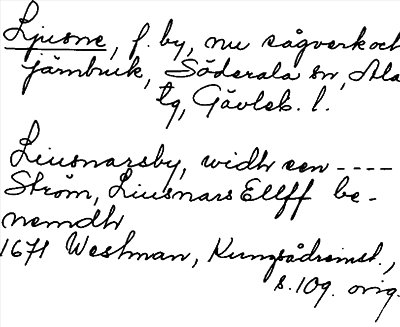 Ljusne, f. by, nu sågverk och
järnbruk, Söderala sn, Ala
tg, Gävleb. l.
Liusnarsby, widh een ----
Ström, Liusnars Ellff be-
nemdh
1671 Westman, Kungsådreinst.,
s. 109. orig.